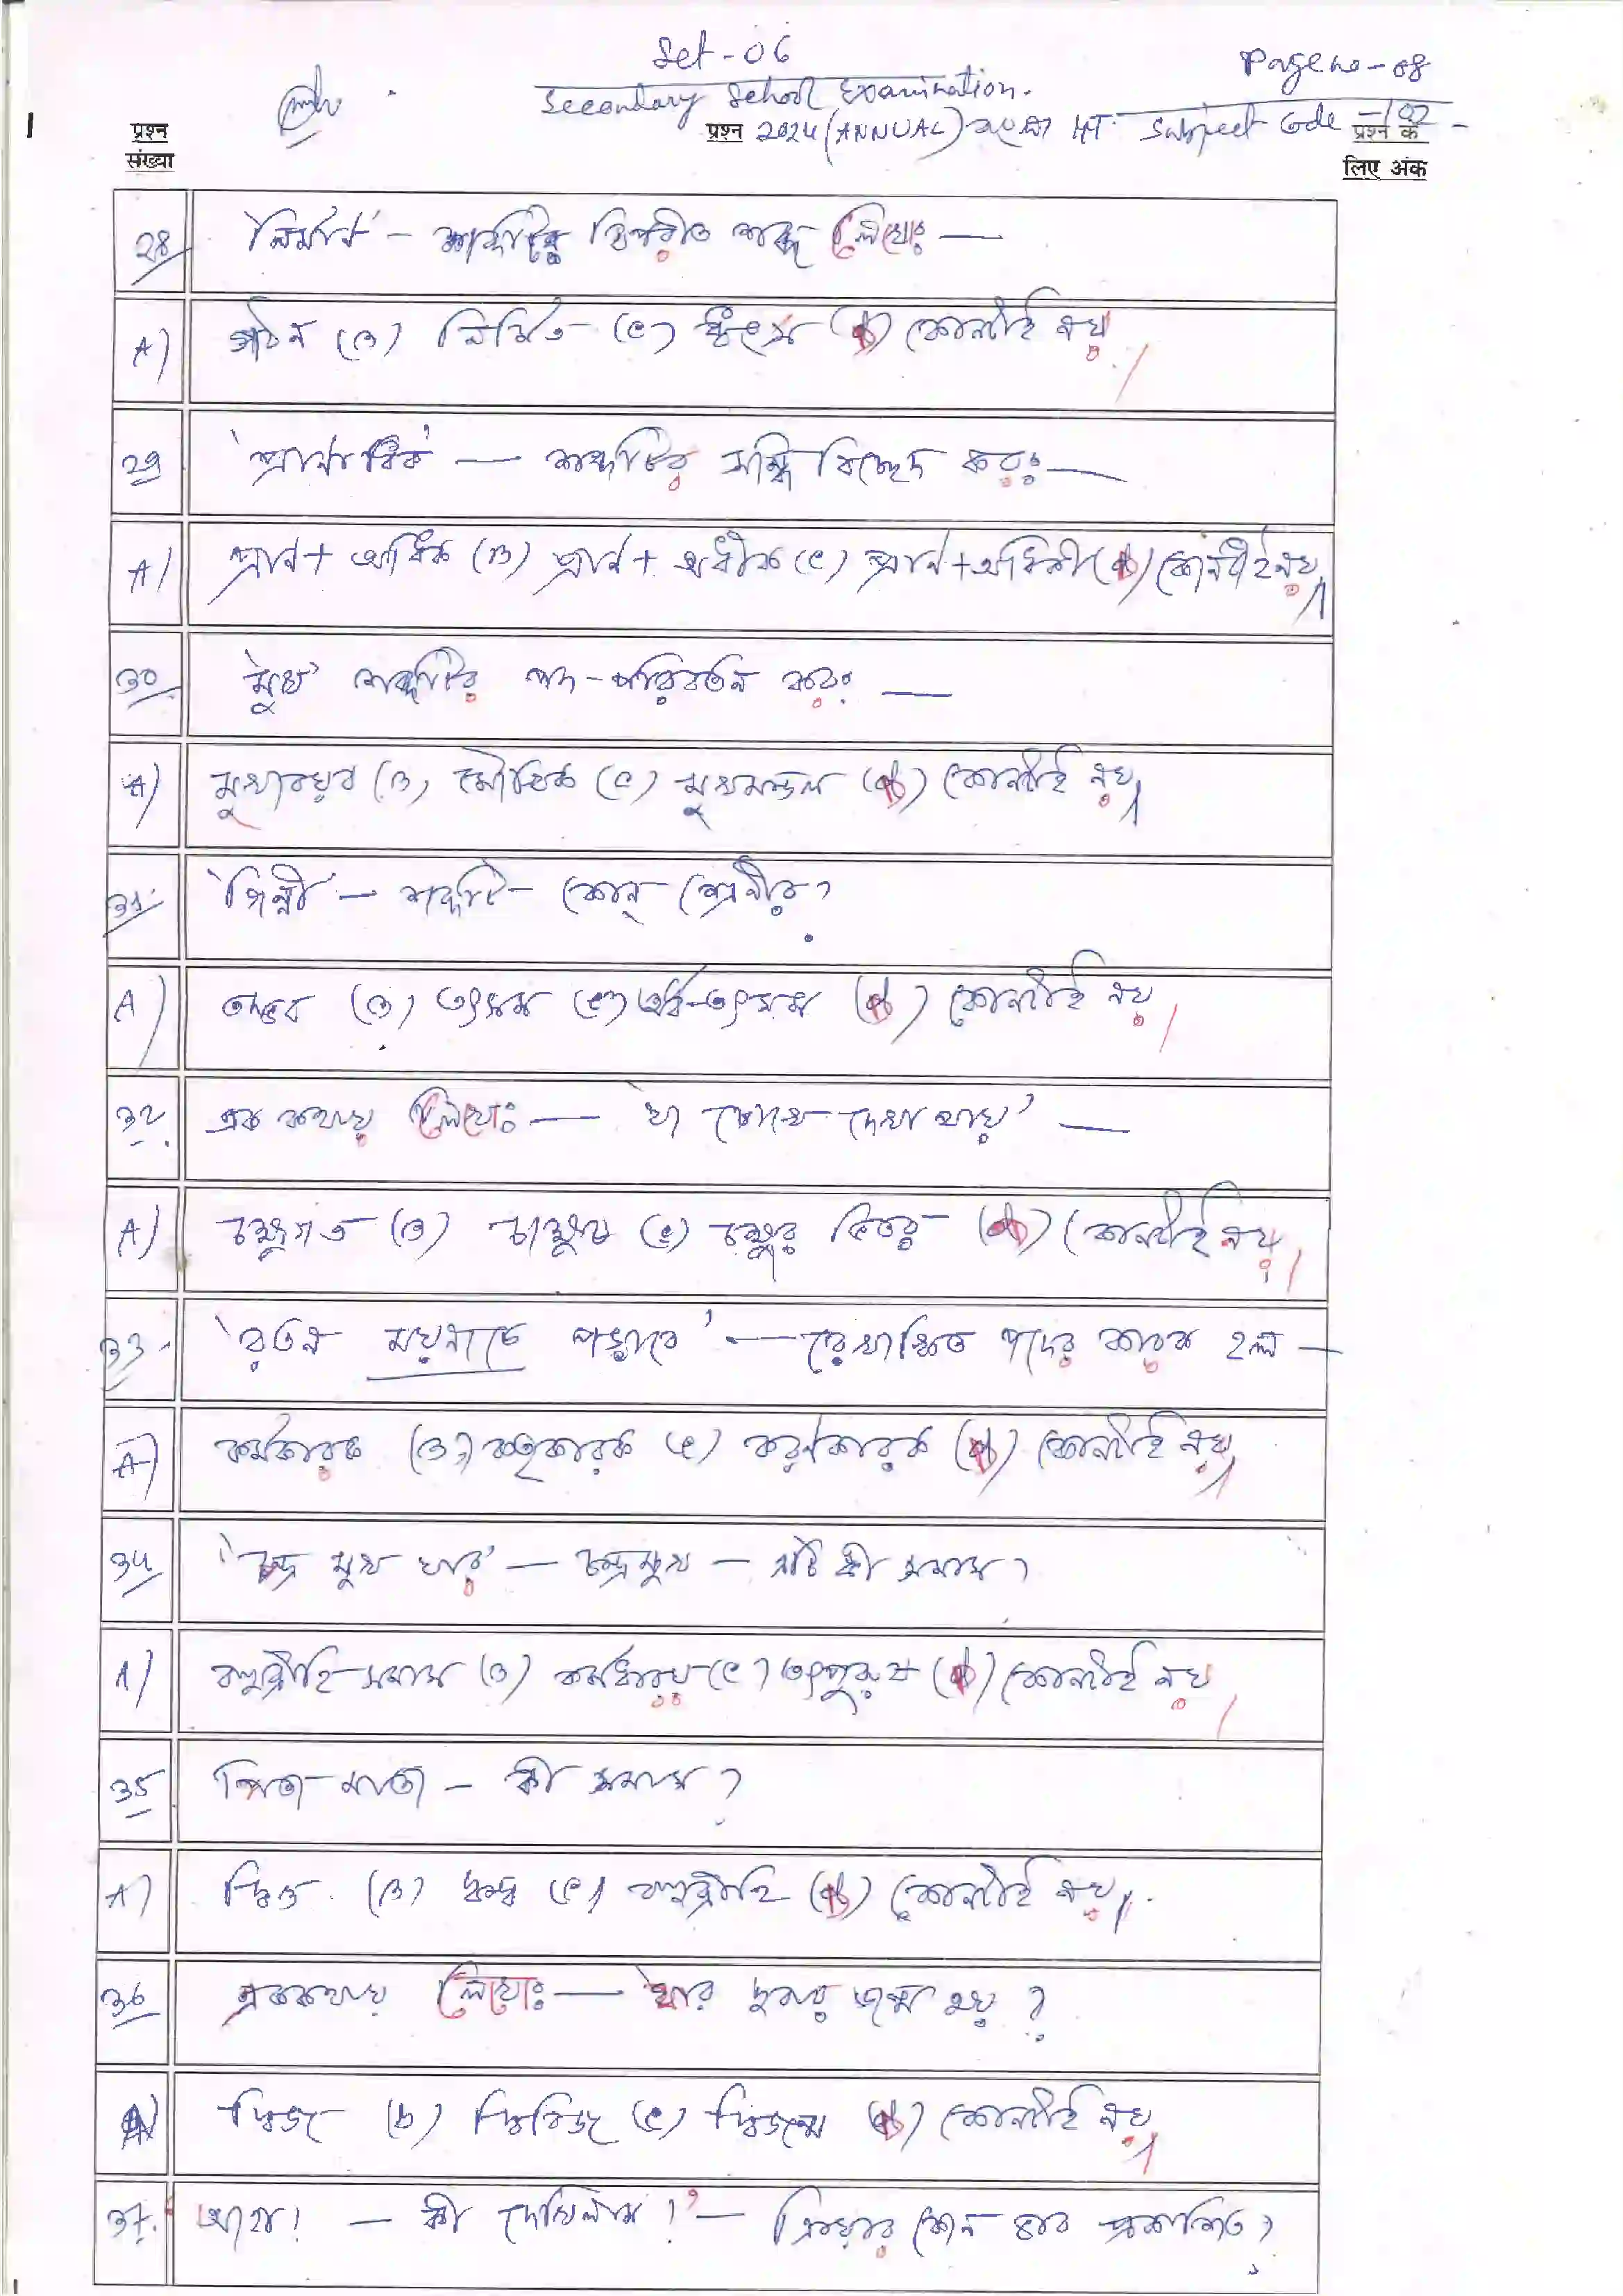 Set-06
Page no-08
Secondary School Examination.
প্রশ্ন
प्रश्न 2024 (ANNUAL) Subject Code -102
प्रश्न के
प्रश्न
संख्या
लिए अंक
28 'নির্মান' - শব্দটির বিপরীত শব্দ লেখোঃ —
A) গঠন (B) নির্মিত (C) ধ্বংস (D) কোনটাই নয়
29 'প্রানাধিক' — শব্দটির সন্ধি বিচ্ছেদ করঃ —
A) প্রান + অধিক (B) প্রান + অধীক (C) প্রান + অধিকী (D) কোনটাই নয়
30 'মুখ' শব্দটির পদ-পরিবর্তন করঃ —
A) মুখাবয়ব (B) মৌখিক (C) মুখমন্ডল (D) কোনটাই নয়
31 'গিন্নী' — শব্দটি - কোন্ শ্রেনীর?
A) তদ্ভব (B) তৎসম (C) অর্ধ-তৎসম (D) কোনটাই নয়
32. এক কথায় লেখোঃ — 'যা চোখে দেখা যায়' —
A) চক্ষুগত (B) চাক্ষুষ (C) চক্ষুর ভিতর (D) কোনটাই নয়
33. 'রতন ময়নাকে পড়াবে' — রেখাঙ্কিত পদের কারক হল —
A) কর্মকারক (B) কর্তৃকারক (C) করণকারক (D) কোনটাই নয়
34 'চন্দ্র মুখ যার' — চন্দ্রমুখ — এটি কী সমাস?
A) বহুব্রীহি-সমাস (B) কর্মধারয় (C) তৎপুরুষ (D) কোনটাই নয়
35 পিতা-মাতা - কী সমাস?
A) দ্বিগু (B) দ্বন্দ্ব (C) বহুব্রীহি (D) কোনটাই নয়
36 এককথায় লেখোঃ — যার দুবার জন্ম হয়?
A) দ্বিজ (b) দ্বিবিজ (C) দ্বিজন্ম (D) কোনটাই নয়
37. আহা! — কী দেখিলাম! — ক্রিয়ার কোন ভাব প্রকাশিত?